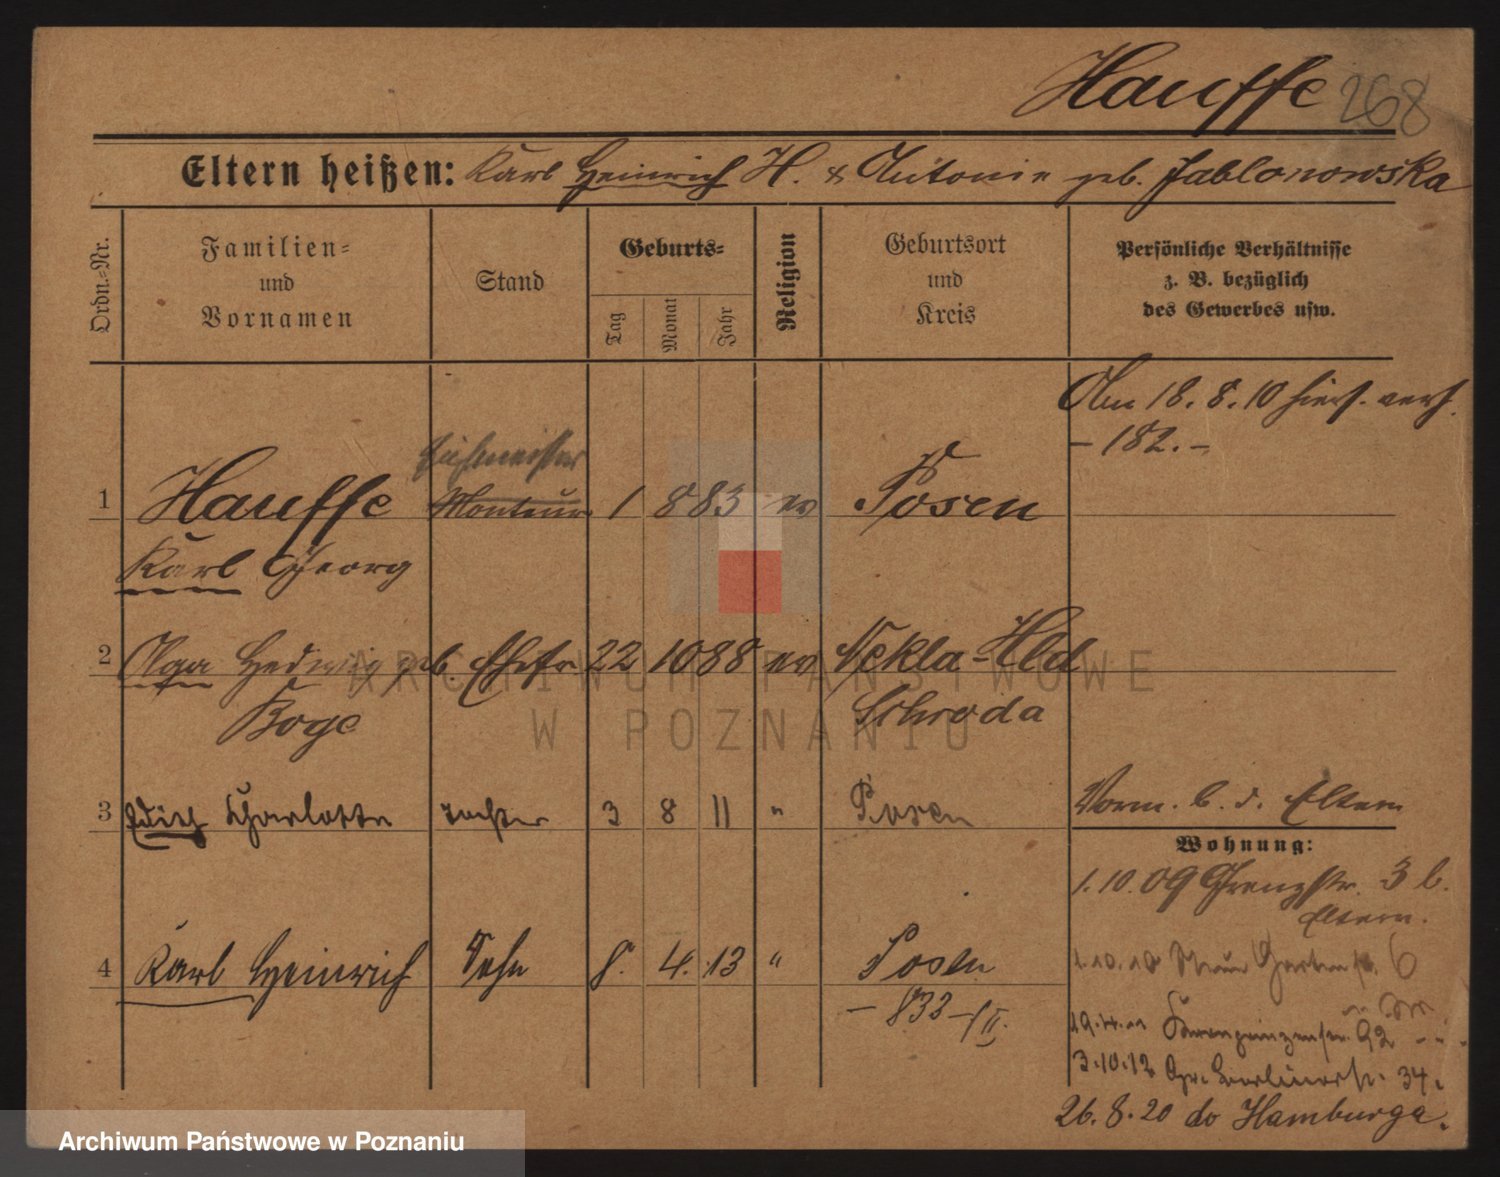 Hauffe 268
Eltern heißen: Karl Heinrich H. & Antonie geb. Jablonowska
Ordn.=Nr.
Familien=
und
Vornamen
Stand
Geburts=
Tag
Monat
Jahr
Religion
Geburtsort
und
Kreis
Persönliche Verhältnisse
z. B. bezüglich
des Gewerbes usw.
Am 18. 8. 10 hier verh.
- 182. -
1 Hauffe Monteur 1 8 83 ev Posen
Karl Georg
2 Olga Hedwig geb. Ehefr 22 10 88 ev Nekla-Hld
Boge Schroda
3 Edith Charlotte Tochter 3 8 11 " Posen
Vorm. b. d. Eltern
Wohnung:
1.10.09 Grenzstr. 3 b.
Eltern.
4 Karl Heinrich Sohn 8. 4. 13 " Posen
- 833 -/II.
1.10.10 Gartenstr. 6
19.4.11 Kronprinzenstr. 92
3.10.12 Gr. Berlinerstr. 34.
26.8.20 do Hamburga.
ARCHIWUM PAŃSTWOWE
W POZNANIU
Archiwum Państwowe w Poznaniu